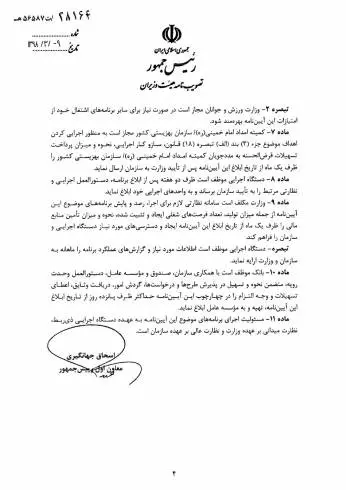 ۲۸۱۶۴ /ت۵۶۵۸۷هـ
شماره
تاریخ ۱۳۹۸/۳/۰۹
جمهوری اسلامی ایران
رئیس جمهور
تصویب نامه هیئت وزیران
تبصره ۲- وزارت ورزش و جوانان مجاز است در صورت نیاز برای سایر برنامه‌های اشتغال خود از
امتیازات این آیین‌نامه بهره‌مند شود.
ماده ۷- کمیته امداد امام خمینی(ره)/ سازمان بهزیستی کشور مجاز است به منظور اجرایی کردن
اهداف موضوع جزء (۳) بند (الف) تبصره (۱۸) قانون، سازو کار اجرایی، نحوه و میزان پرداخت
تسهیلات، قرض‌الحسنه به مددجویان کمیته امداد امام خمینی (ره)/ سازمان بهزیستی کشور را
ظرف یک ماه از تاریخ ابلاغ این آیین‌نامه پس از تأیید وزارت به سازمان ارسال نماید.
ماده ۸- دستگاه اجرایی موظف است ظرف دو هفته پس از ابلاغ برنامه، دستورالعمل اجرایی و
نظارتی مرتبط را به تأیید سازمان برساند و به واحدهای اجرایی خود ابلاغ نماید.
ماده ۹- وزارت مکلف است سامانه نظارتی لازم برای اجرا، رصد و پایش برنامه‌های موضوع این
آیین‌نامه از جمله میزان تولید، تعداد فرصت‌های شغلی ایجاد و تثبیت شده، نحوه و میزان تأمین منابع
مالی را ظرف یک ماه از تاریخ ابلاغ این آیین‌نامه ایجاد و دسترسی‌های مورد نیاز دستگاه اجرایی و
سازمان را فراهم کند.
تبصره- دستگاه اجرایی موظف است اطلاعات مورد نیاز و گزارش‌های عملکرد برنامه را ماهانه به
سازمان و وزارت ارایه نماید.
ماده ۱۰- بانک موظف است با همکاری سازمان، صندوق و مؤسسه عامل، دستورالعمل وحدت
رویه، متضمن نحوه و تسهیل در پذیرش طرح‌ها و درخواست‌ها، گردش امور، دریافت وثایق، اعطای
تسهیلات و وجه التزام را در چهارچوب این آیین‌نامه حداکثر ظرف پانزده روز از تاریخ ابلاغ
این آیین‌نامه، تهیه و به مؤسسه عامل ابلاغ نماید.
ماده ۱۱- مسئولیت اجرای برنامه‌های موضوع این آیین‌نامه به عهده دستگاه اجرایی ذی‌ربط،
نظارت میدانی بر عهده وزارت و نظارت عالی بر عهده سازمان است.
اسحاق جهانگیری
معاون اول رییس‌جمهور
۴